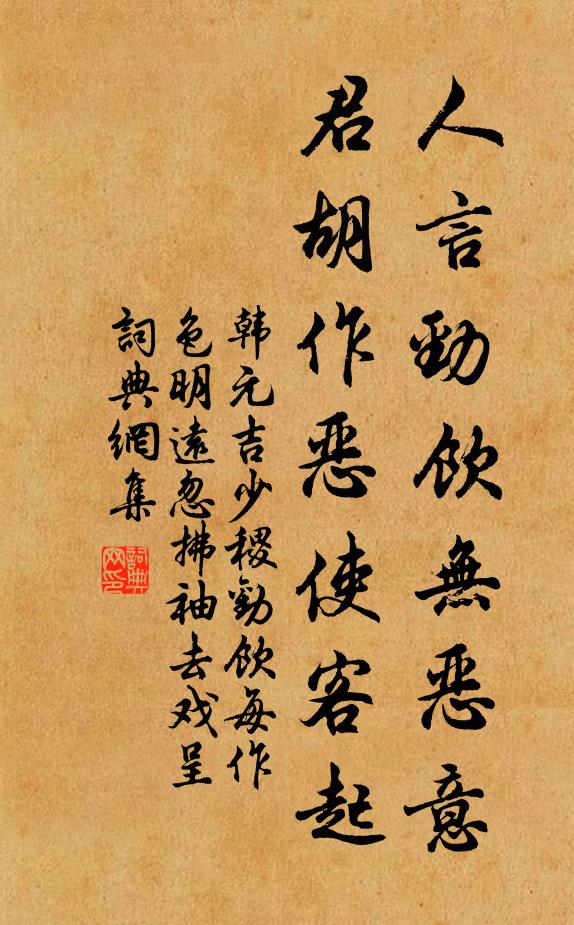 人言勁飲無恶意
君胡作恶使客起
韩元吉少稷勸飲每作
色明遠忽拂袖去戏呈
詞典網集
詞典网印